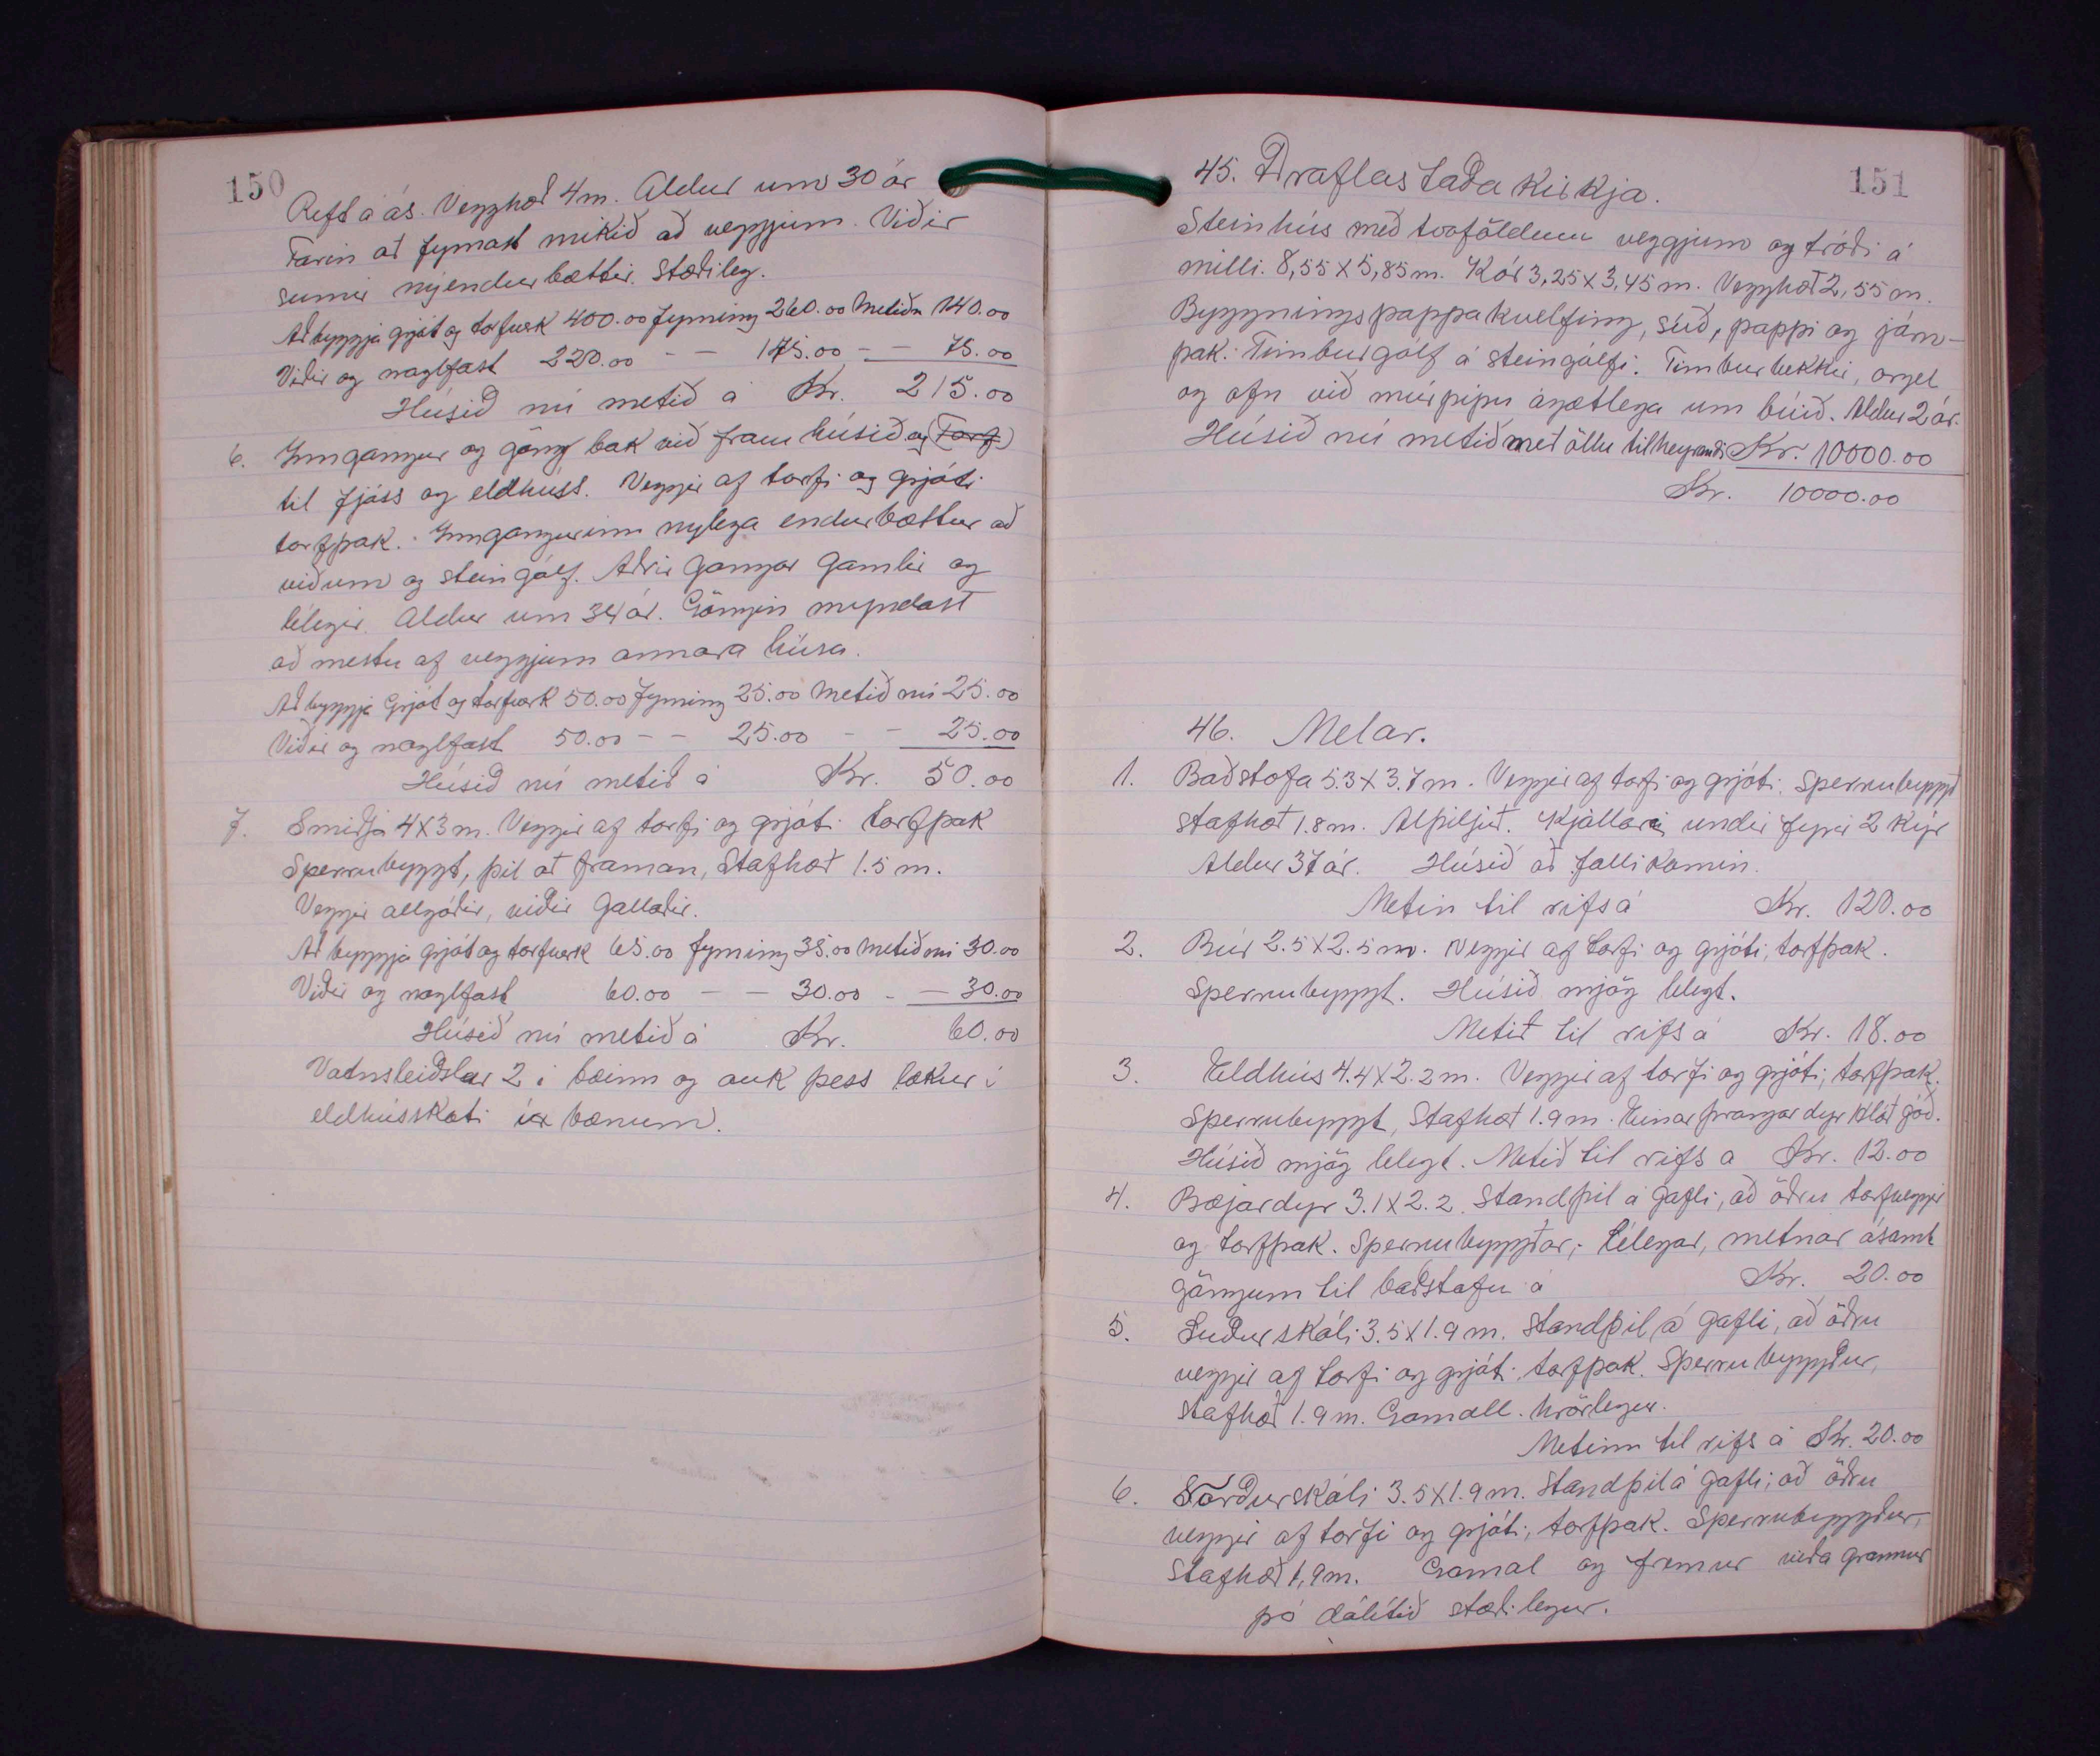 150
Reft á ás. Vegghæð 4m. Aldur um 30 ár
Farin að fyrnast mikið að veggjum. Viðir
sumir nýendurbættir. Stæðileg.
Að byggja grjót og torfverk 400.00 fyrning 260.00 Metið nú 140.00
Viðir og naglfast 220.00 - - 145.00 - - 75.00
Húsið nú metið á Kr. 215.00
6. Inngangur og göng bak við framhúsið og (Torf)
til fjóss og eldhúss. Veggir af torfi og grjóti
torfþak. Inngangurinn nýlega endurbættur að
viðum og steingólf. Aðrir gangar gamlir og
lélegir. Aldur um 34 ár. Göngin myndast
að mestu af veggjum annara húsa.
Að byggja Grjót og torfverk 50.00 fyrning 25.00 Metið nú 25.00
Viðir og naglfast 50.00 - - 25.00 - - 25.00
Húsið nú metið á Kr. 50.00
7. Smiðja 4X3 m. Veggir af torfi og grjóti torfþak
Sperrubyggt, þil að framan, Stafhæð 1.5 m.
Veggir allgóðir, viðir gallaðir.
Að byggja grjót og torfverk 65.00 fyrning 35.00 Metið nú 30.00
Viðir og naglfast 60.00 - - 30.00 - - 30.00
Húsið nú metið á Kr. 60.00
Vatnsleiðslur 2 í bæinn og auk þess lækur í
eldhússkoti úr bænum.
151
45. Draflastaðakirkja.
Steinhús með tvoföldum veggjum og tróði á
milli. 8,55 X 5,85 m. Kór 3,25 X 3,45 m. Vegghæð 2,55 m.
Byggningspappakvelfing, súð, pappi og járn-
þak. Timburgólf á steingólfi. Timburbekkir, orgel
og ofn við múrpípu ágætlega um búið. Aldur 2 ár.
Húsið nú metið með öllu tilheyrandi Kr. 10000.00
Kr. 10000.00
46. Melar.
1. Baðstofa 5.3 X 3.7 m. Veggir af torfi og grjóti. Sperrubyggð
Stafhæð 1.8 m. Alþiljuð. Kjallari undir fyrir 2 kýr
Aldur 37 ár. Húsið að falli komin.
Metin til rifs á Kr. 120.00
2. Búr 2.5 X 2.5 m. Veggir af torfi og grjóti, torfþak.
Sperrubyggt. Húsið mjög lélegt.
Metið til rifs á Kr. 18.00
3. Eldhús 4.4 X 2.2 m. Veggir af torfi og grjóti, torfþak.
Sperrubyggt, Stafhæð 1.9 m. Einar dyr góð.
Húsið mjög lélegt. Metið til rifs á Kr. 12.00
4. Bæjardyr 3.1 X 2.2. Standþil á gafli, að öðru torfveggir
og torfþak. Sperrubyggðar, lélegar, metnar ásamt
göngum til baðstofu á Kr. 20.00
5. Suðurskáli 3.5 X 1.9 m. Standþil á gafli, að öðru
veggir af torfi og grjóti. torfþak. Sperrubyggður,
Stafhæð 1.9 m. Gamall. hrörlegur.
Metinn til rifs á Kr. 20.00
6. Norðurskáli 3.5 X 1.9 m. Standþil á gafli, að öðru
veggir af torfi og grjóti, torfþak. Sperrubyggður,
Stafhæð 1,9 m. Gamal og fremur viða grannur
þó dálítið stæðilegur.